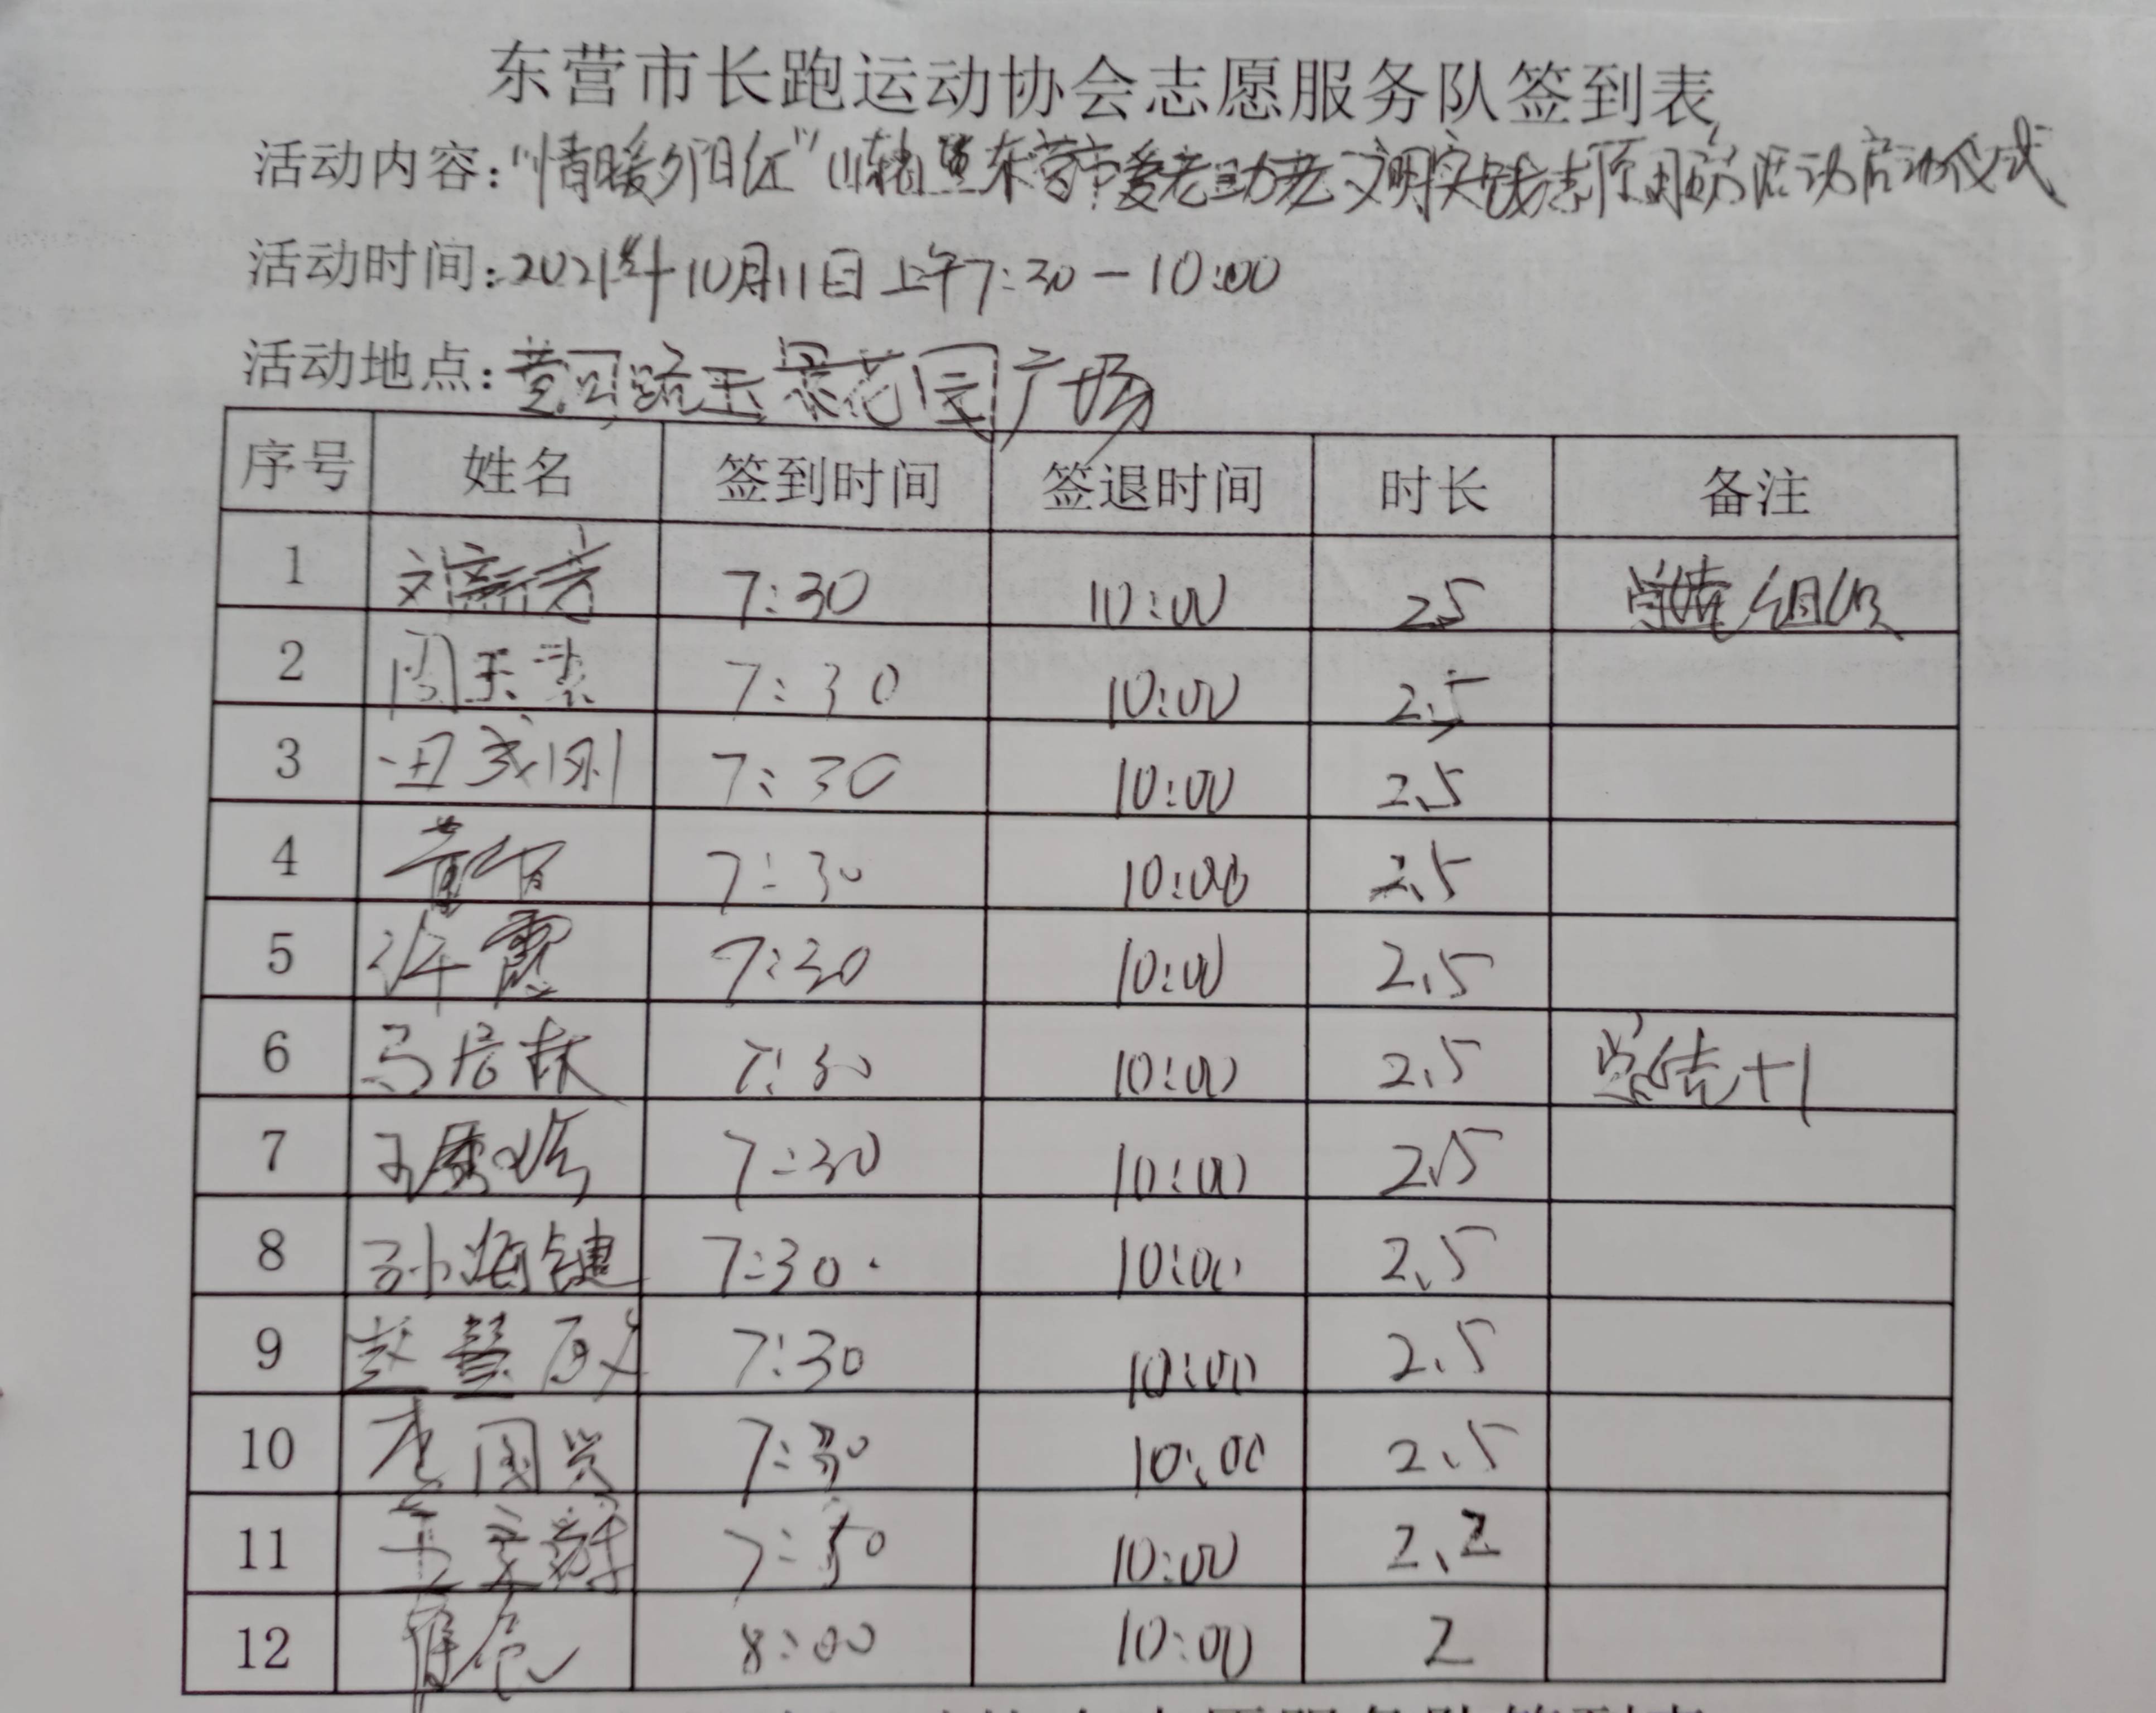 东营市长跑运动协会志愿服务队签到表
活动内容："情暖夕阳红"山东省暨东营市爱老助老文明实践志愿服务活动启动仪式
活动时间：2021年10月11日上午7:30-10:00
活动地点：黄河路玉景花园广场
序号 姓名 签到时间 签退时间 时长 备注
1 刘新芳 7:30 10:00 2.5 组织
2 周玉 7:30 10:00 2.5
3 刚 7:30 10:00 2.5
4 7:30 10:00 2.5
5 许霞 7:30 10:00 2.5
6 马 林 7:30 10:00 2.5 总结+1
7 7:30 10:00 2.5
8 孙海键 7:30 10:00 2.5
9 赵慧敏 7:30 10:00 2.5
10 李国兴 7:30 10:00 2.5
11 7:50 10:00 2.2
12 8:00 10:00 2